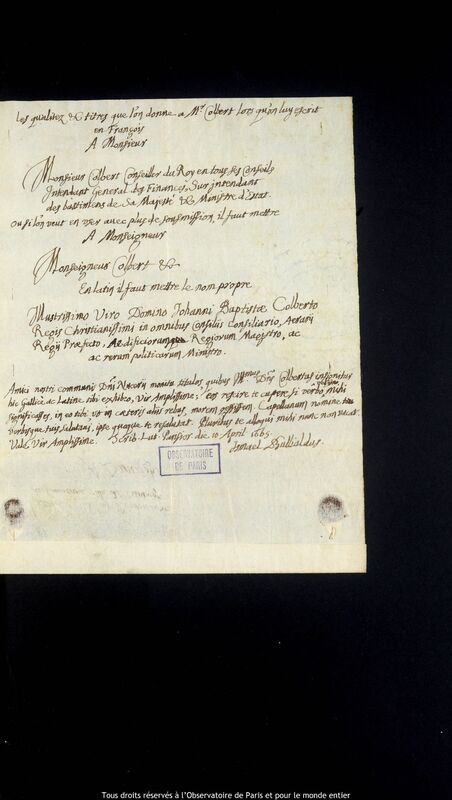 les qualitez & titres que l'on donne a Mr Colbert lors qu'on luy escrit
en François
A Monsieur
Monsieur Colbert Conseiller du Roy en tous ses Conseils
Intendant General des Finances, Sur intendant
des bastimens de Sa Majesté & Ministre d'Estat.
ou si l'on veut en user avec plus de sousmission, il faut mettre
A Monseigneur
Monseigneur Colbert &
En latin il faut mettre le nom propre
Illustrissimo Viro Domino Iohanni Baptistæ Colberto
Regis Christianissimi in omnibus Consiliis Consiliario, Aerarii
Regii Præfecto, Aedificiorumque Regiorum Magistro, ac
ac rerum politicarum Ministro.
Amici nostri communis Dni monitu titulos, quibus Dns Colbertus
hic Gallicè, ac Latine tibi exhibeo, Vir Amplissime; si verbo mihi
significasses, in eo tibi ut in cæteris aliis rebus, morem Capellanum nomine tuo
salutavi, ipse quoque te resalutat. Pluribus te alloqui mihi nunc non vacat.
Vale Vir Amplissime. Scrib. Lut. Parisior. die 10 April 1665
Ismael Bullialdus.
OBSERVATOIRE
DE PARIS
Tous droits réservés à l'Observatoire de Paris et pour le monde entier